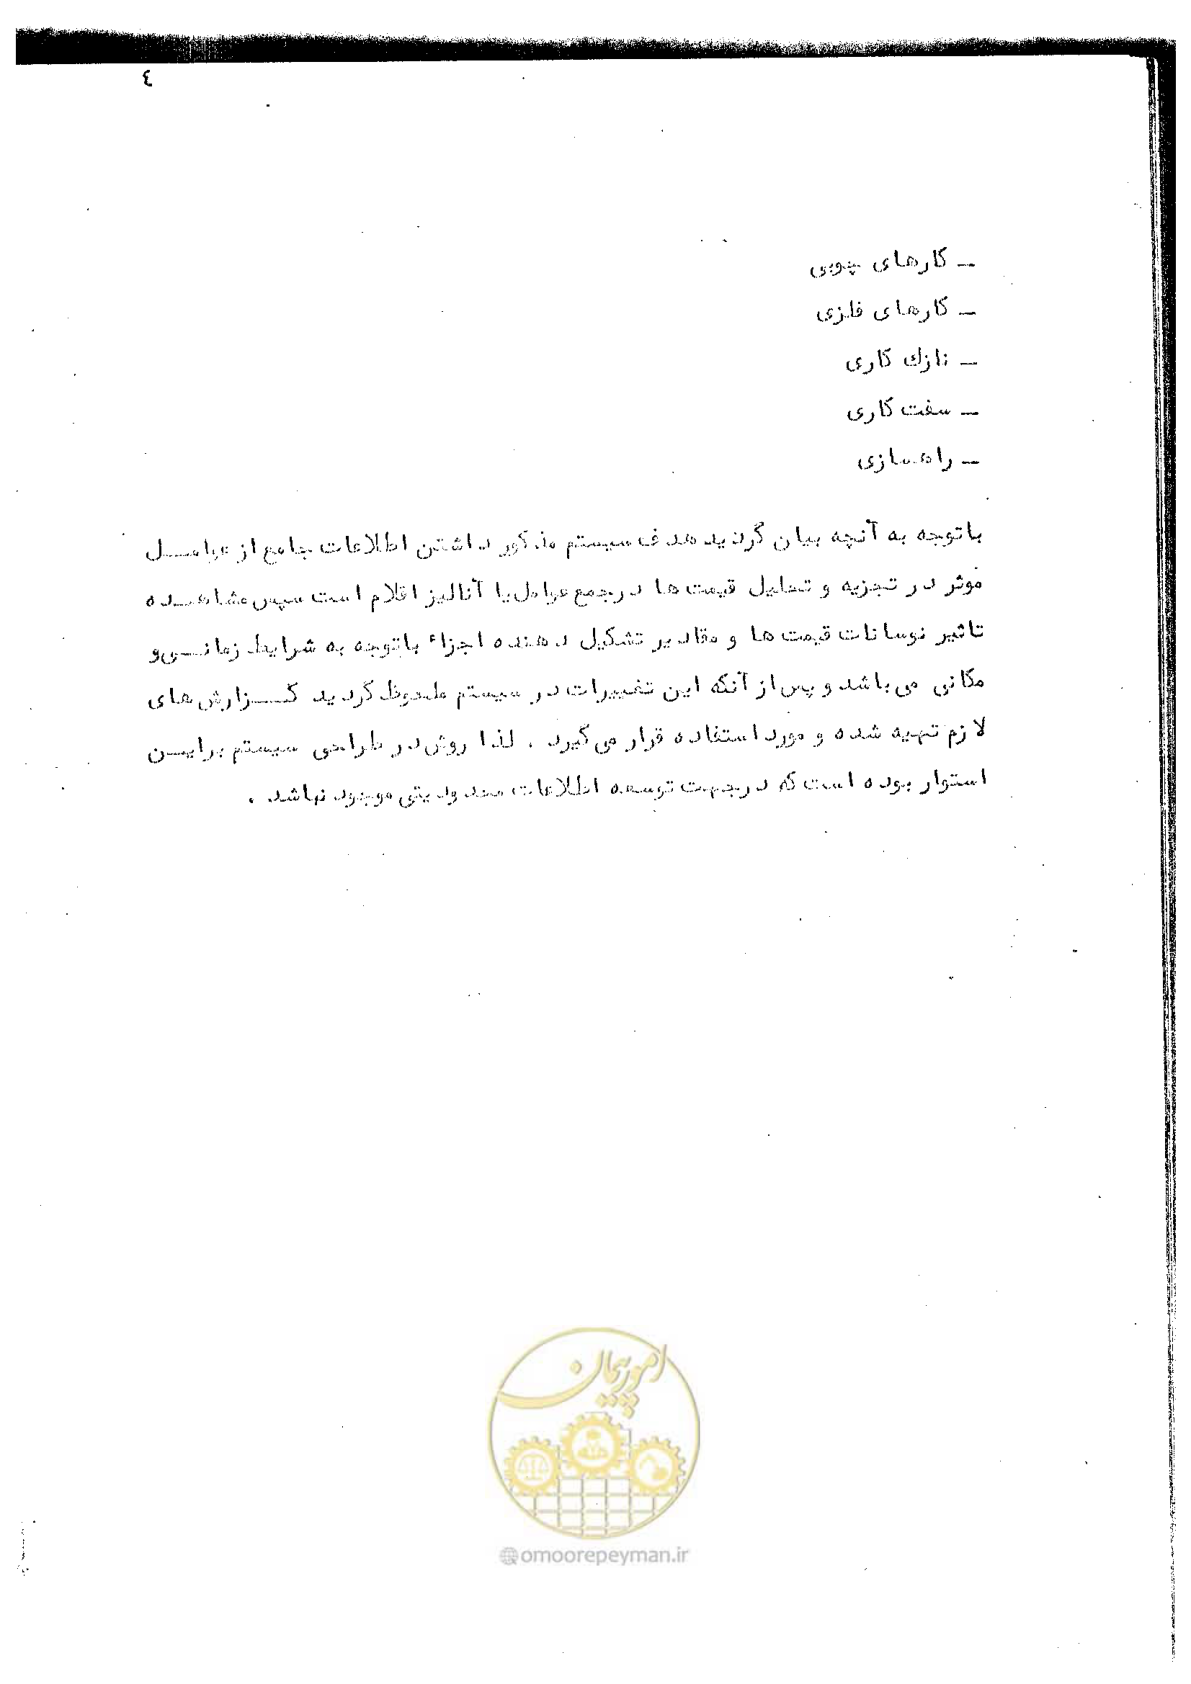 ٤
ـ کارهای چوبی
ـ کارهای فلزی
ـ نازك کاری
ـ سفت کاری
ـ راهسازی
باتوجه به آنچه بیان گردید هدف سیستم مذکور داشتن اطلاعات جامع از عوامل
موثر در تجزیه و تحلیل قیمت ها در جمع عوامل یا آنالیز اقلام است سپس مشاهده
تاثیر نوسانات قیمت ها و مقادیر تشکیل دهنده اجزاء باتوجه به شرایط زمانی و
مکانی می باشد و پس از آنکه این تغییرات در سیستم ملحوظ گردید گزارش های
لازم تهیه شده و مورد استفاده قرار می گیرد . لذا روش در طراحی سیستم براین
استوار بوده است که در جهت توسعه اطلاعات محدودیتی موجود نباشد .
امور پیمان
omoorepeyman.ir